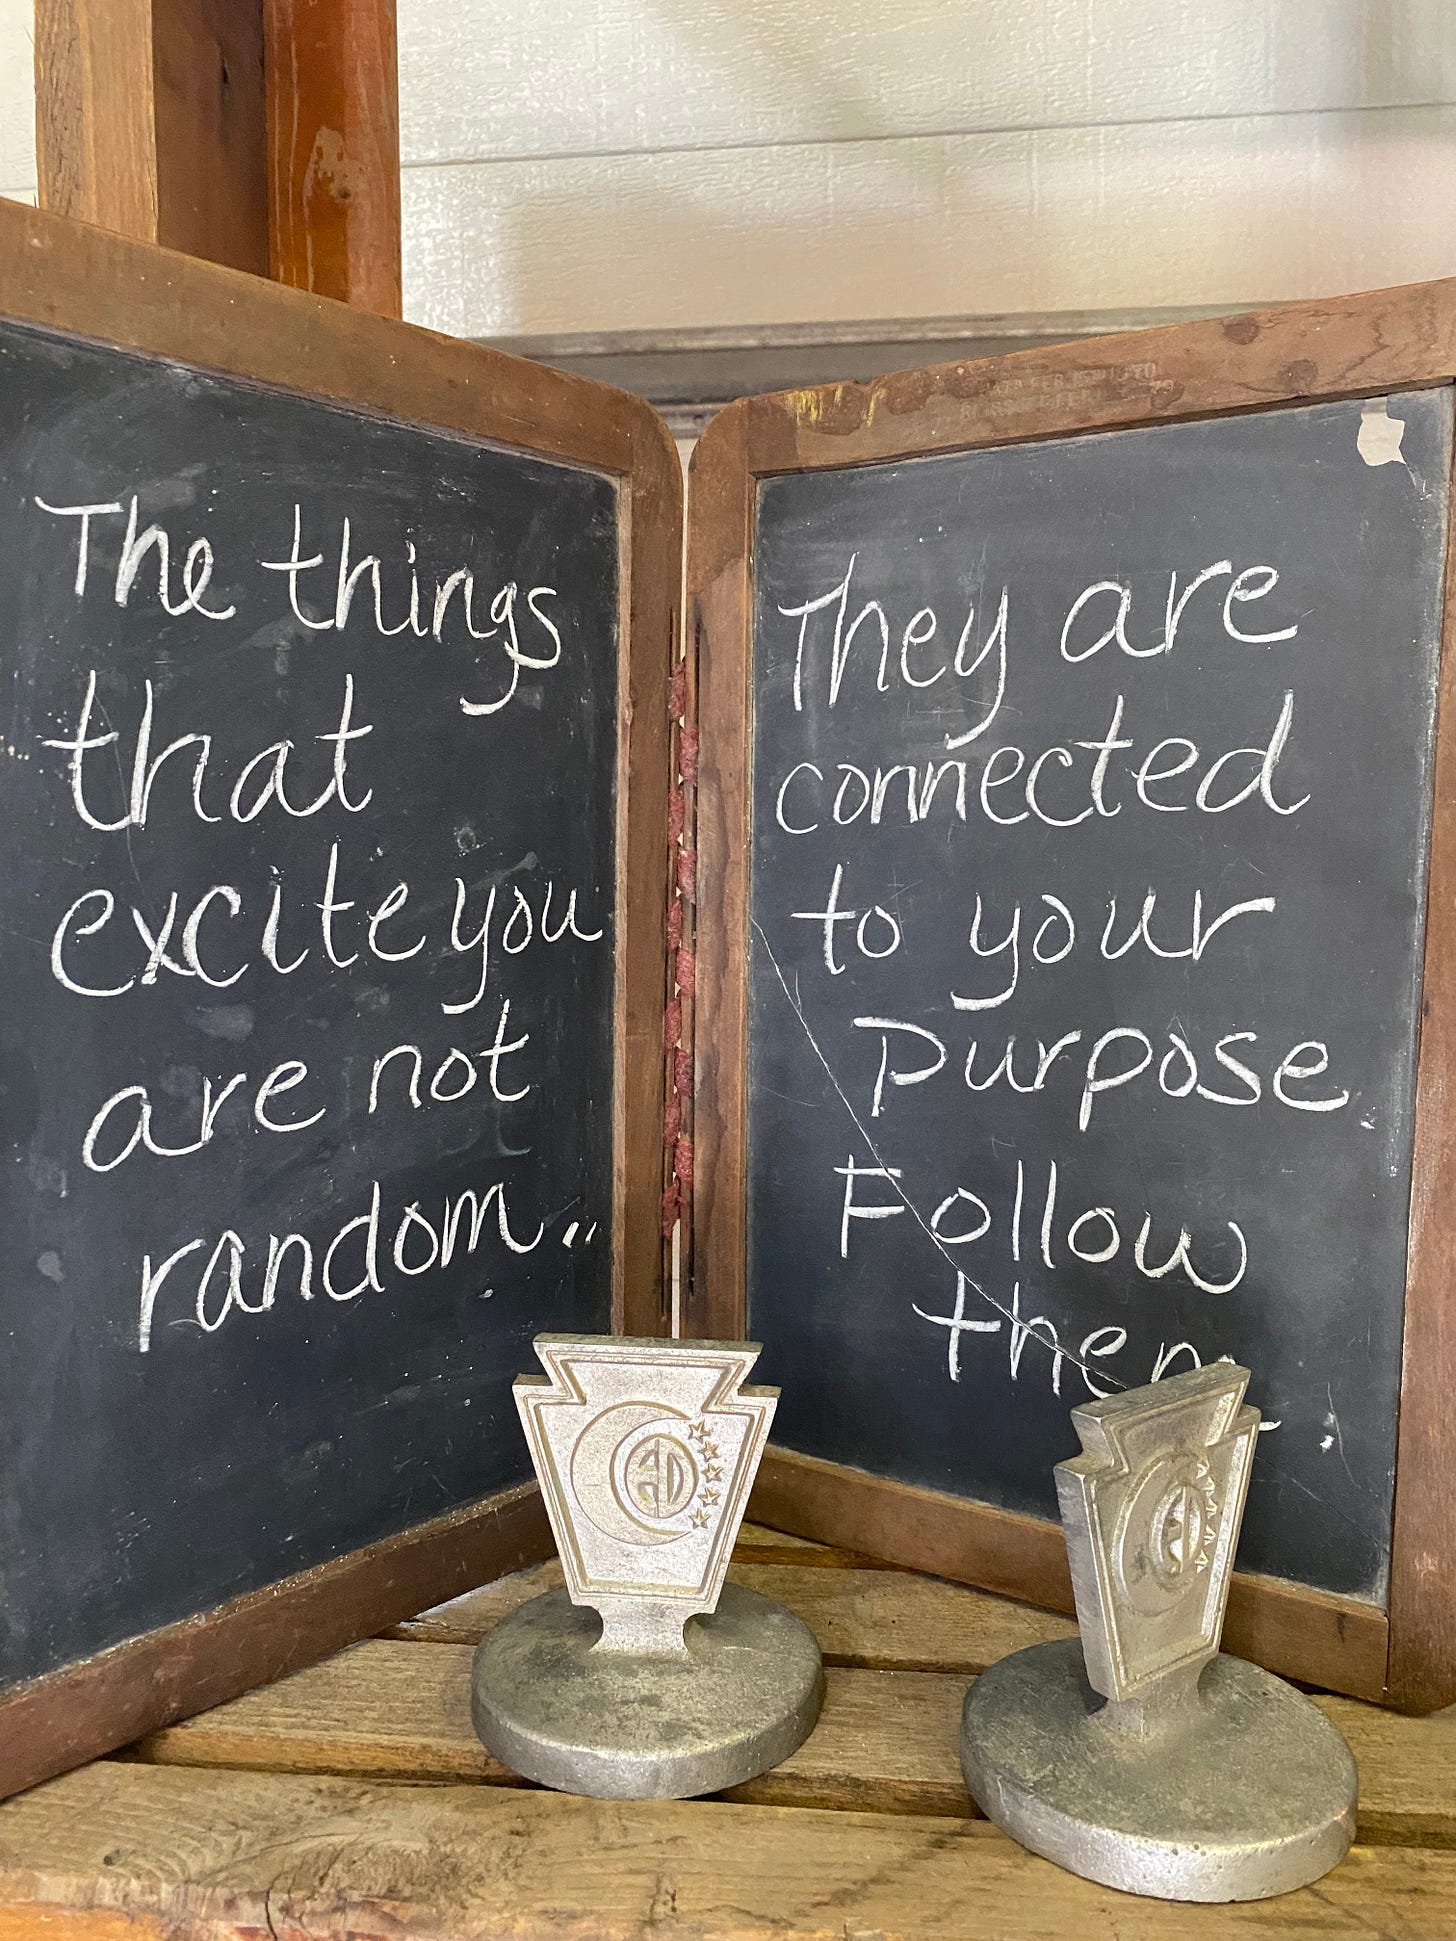 The things
that
excite you
are not
random..
They are
connected
to your
Purpose.
Follow